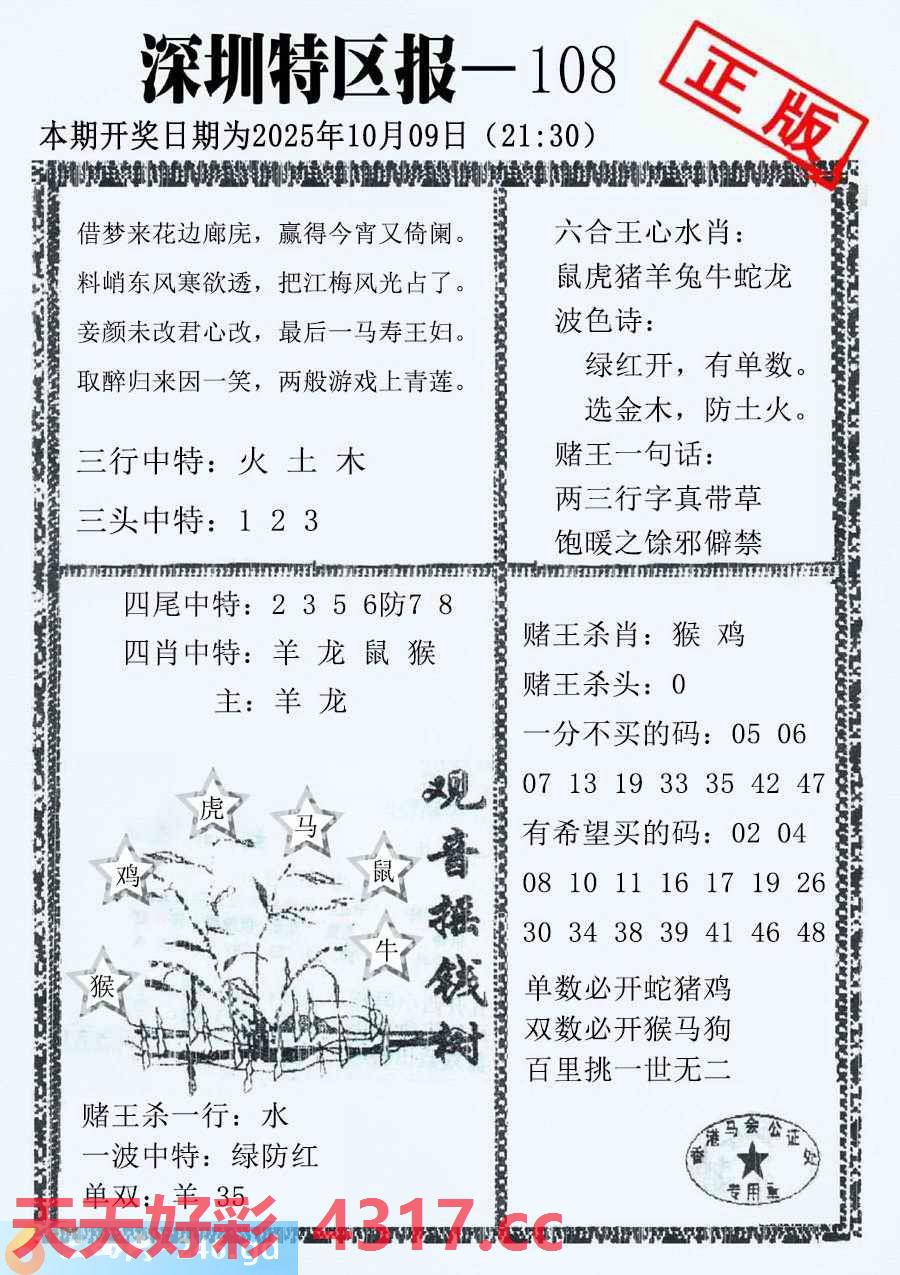 深圳特区报—108
正版
本期开奖日期为2025年10月09日（21:30）
借梦来花边廊庑，赢得今宵又倚阑。
料峭东风寒欲透，把江梅风光占了。
妾颜未改君心改，最后一马寿王妇。
取醉归来因一笑，两般游戏上青莲。
三行中特：火 土 木
三头中特：1 2 3
六合王心水肖：
鼠虎猪羊兔牛蛇龙
波色诗：
绿红开，有单数。
选金木，防土火。
赌王一句话：
两三行字真带草
饱暖之馀邪僻禁
四尾中特：2 3 5 6防7 8
四肖中特：羊 龙 鼠 猴
主：羊 龙
观音摇钱树
虎
马
鸡
鼠
牛
猴
赌王杀一行：水
一波中特：绿防红
单双：羊 35
赌王杀肖：猴 鸡
赌王杀头：0
一分不买的码：05 06
07 13 19 33 35 42 47
有希望买的码：02 04
08 10 11 16 17 19 26
30 34 38 39 41 46 48
单数必开蛇猪鸡
双数必开猴马狗
百里挑一世无二
香港马会公证处
专用章
天天好彩 4317.cc